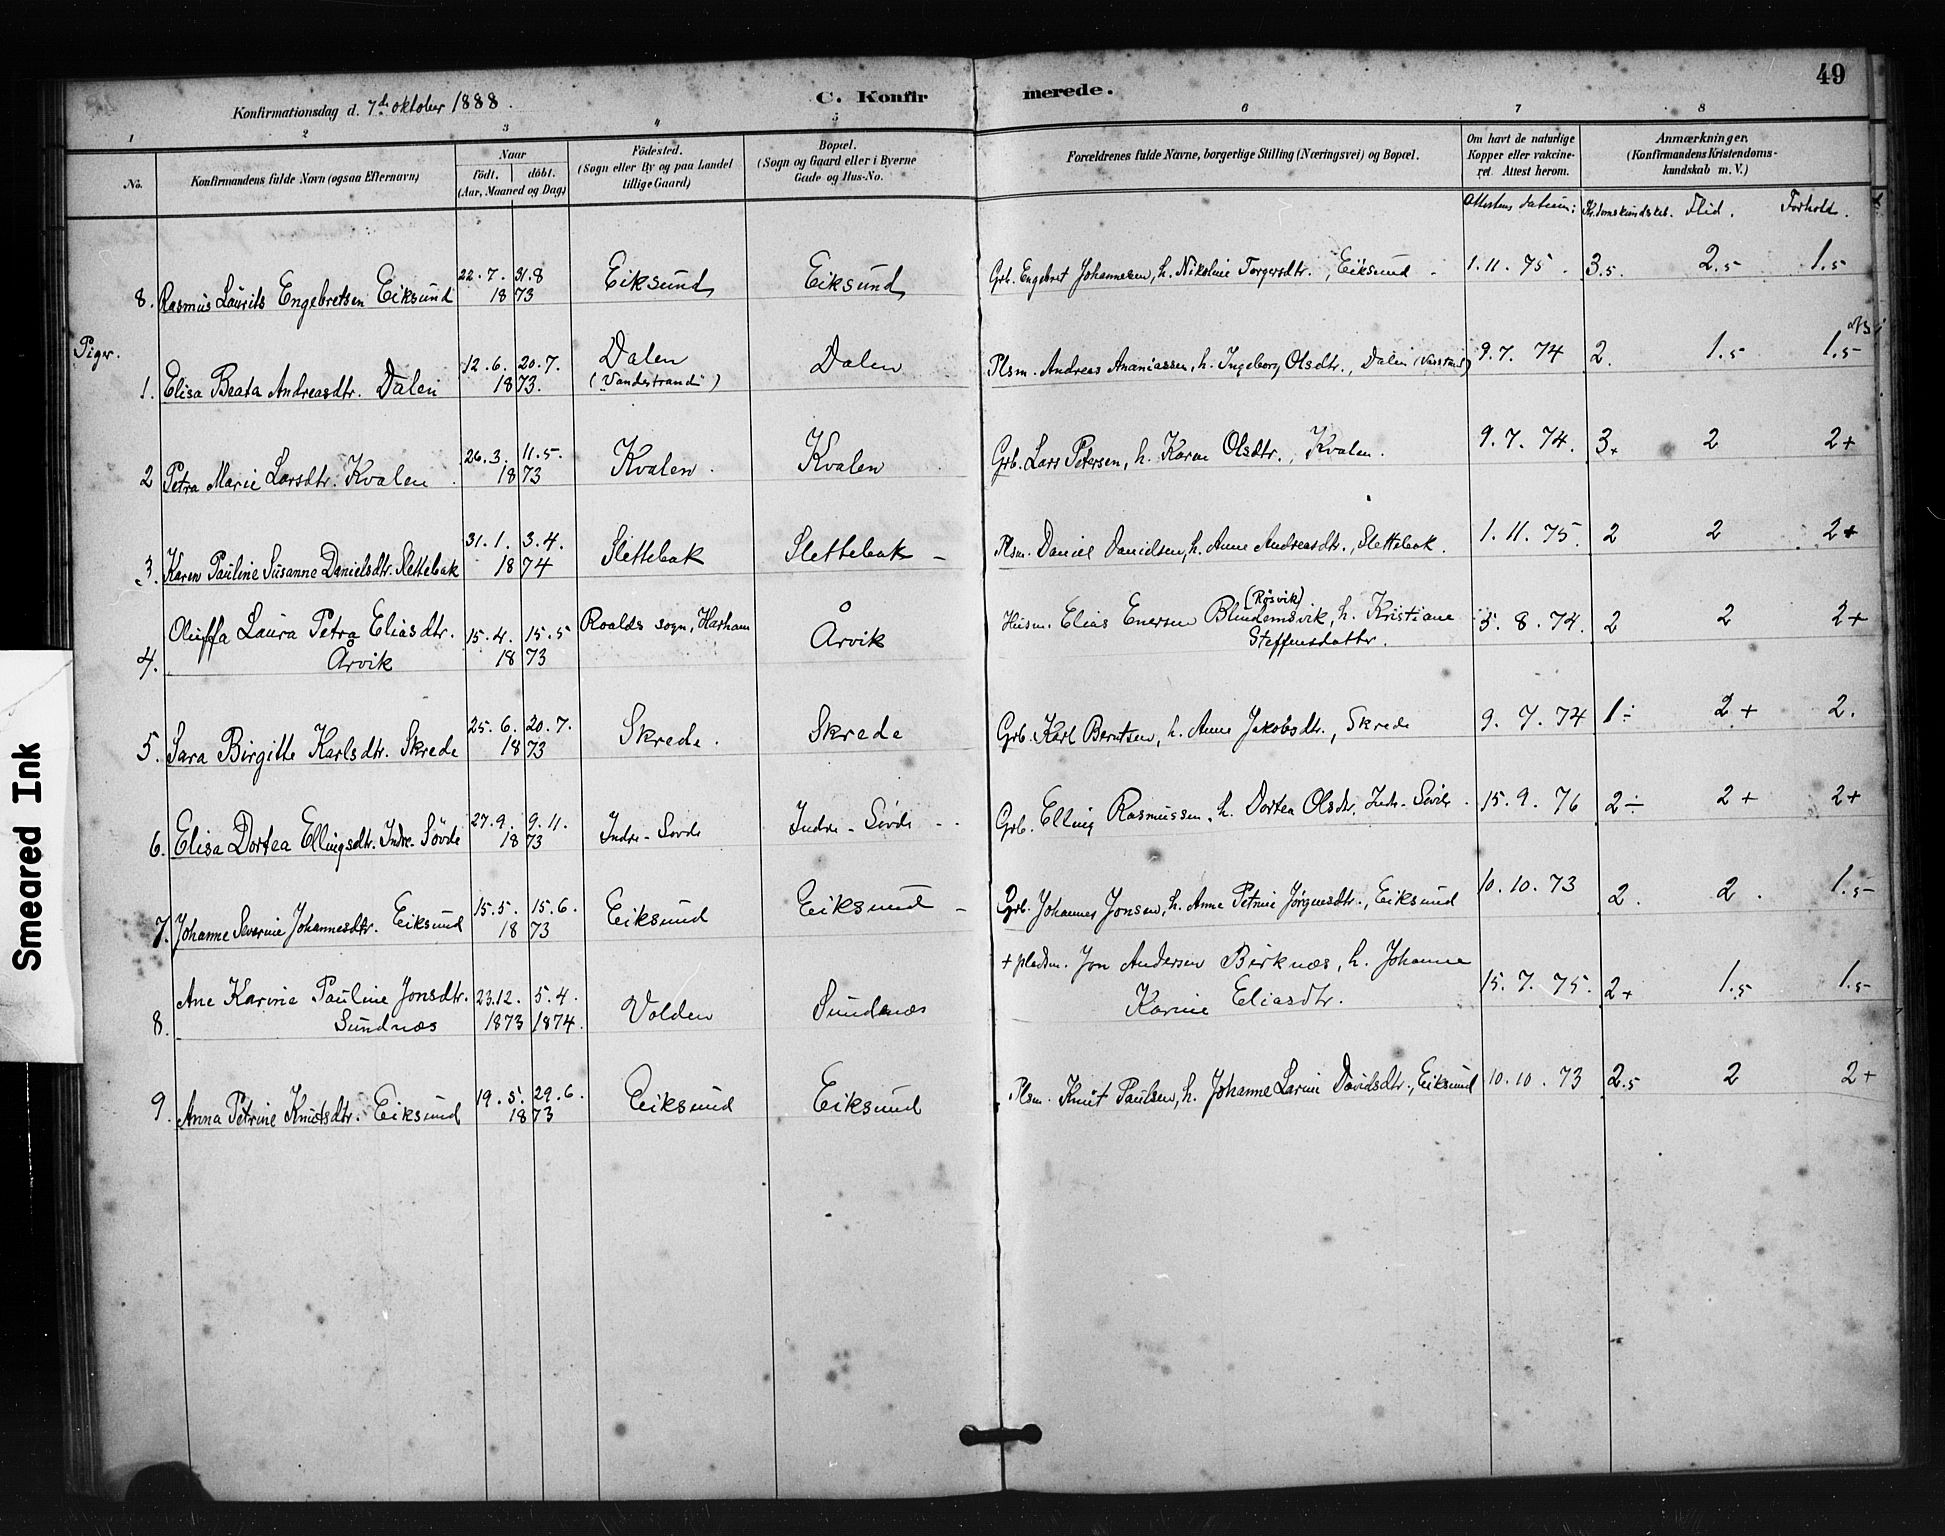 49
Konfirmationsdag d. 7de oktober 1888.
C. Konfirmerede.
1 2 3 4 5 6 7 8
No.
Konfirmandens fulde Navn (ogsaa Efternavn)
Naar
födt. döbt.
(Aar, Maaned og Dag)
Födested.
(Sogn eller By og paa Landet
tillige Gaard)
Bopæl.
(Sogn og Gaard eller i Byerne
Gade og Hus-No.
Forældrenes fulde Navne, borgerlige Stilling (Næringsvei) og Bopæl.
Om havt de naturlige
Kopper eller vakcine-
ret. Attest herom.
Anmærkninger.
(Konfirmandens Kristendoms-
kundskab m. V.)
Attestens datum: Kr.domskundskab. Flid. Forhold.
8. Rasmus Laurits Engebretsen Eiksund 22.7. 31.8 1873 Eiksund Eiksund Grb. Engebret Johannesen, h. Nikoline Torgersdtr., Eiksund 1.11.75. 3.5. 2.5 1.5
Piger.
1. Elisa Beata Andreasdtr. Dalen 12.6. 20.7. 1873. Dalen (Vandestranda) Dalen Plsm. Andreas Ananiassen, h. Ingeborg Olsdtr., Dalen 9.7.74 2. 1.5 1.5
2 Petra Marie Larsdtr. Kvalen 26.3. 11.5. 1873 Kvalen. Kvalen Grb. Lars Petersen, h. Karen Olsdtr., Kvalen. 9.7.74. 3+ 2 2+
3. Karen Pauline Susanne Danielsdtr. Slettebak 31.1. 3.4. 1874 Slettebak Slettebak Plsm. Daniel Danielsen, h. Anne Andreasdtr., Slettebak. 1.11.75. 2 2 2+
4. Oluffa Laura Petra Eliasdtr. Årvik 15.4. 15.5 1873 Roalds sogn, Harham Årvik Husm. Elias Enersen Blindemsvik (Røsvik), h. Kristiane Steffensdatter. 5.8.74. 2 2 2+
5. Sara Birgitte Karlsdtr. Skrede 25.6. 20.7. 1873 Skrede. Skrede Grb. Karl Berntsen, h. Anne Jakobsdtr., Skrede 9.7.74 1÷ 2+ 2.
6. Elisa Dortea Ellingsdtr. Indre-Søvde 27.9. 9.11. 1873 Indre-Sovde Indre-Søvde Grb. Elling Rasmussen, h. Dortea Olsdtr. Indr-Søvde. 15.9.76 2÷ 2+ 2+
7. Johanne Severine Johannesdtr. Eiksund 15.5. 15.6. 1873 Eiksund Eiksund Grb. Johannes Jonsen, h. Anne Petrine Jørgensdtr., Eiksund 10.10.73 2. 2. 1.5
8. Ane Karine Pauline Jonsdtr. Sundnæs 23.12. 1873 5.4. 1874. Volden Sundnæs + pladsm. Jon Andersen Birknæs, h. Johanne Karine Eliasdtr. 15.7.75. 2+ 1.5 1.5
9. Anna Petrine Knutsdtr. Eiksund 19.5. 29.6. 1873 Eiksund Eiksund Plsm. Knut Paulsen, h. Johanne Larine Davidsdtr., Eiksund 10.10.73 2.5 2 2+
Smeared Ink